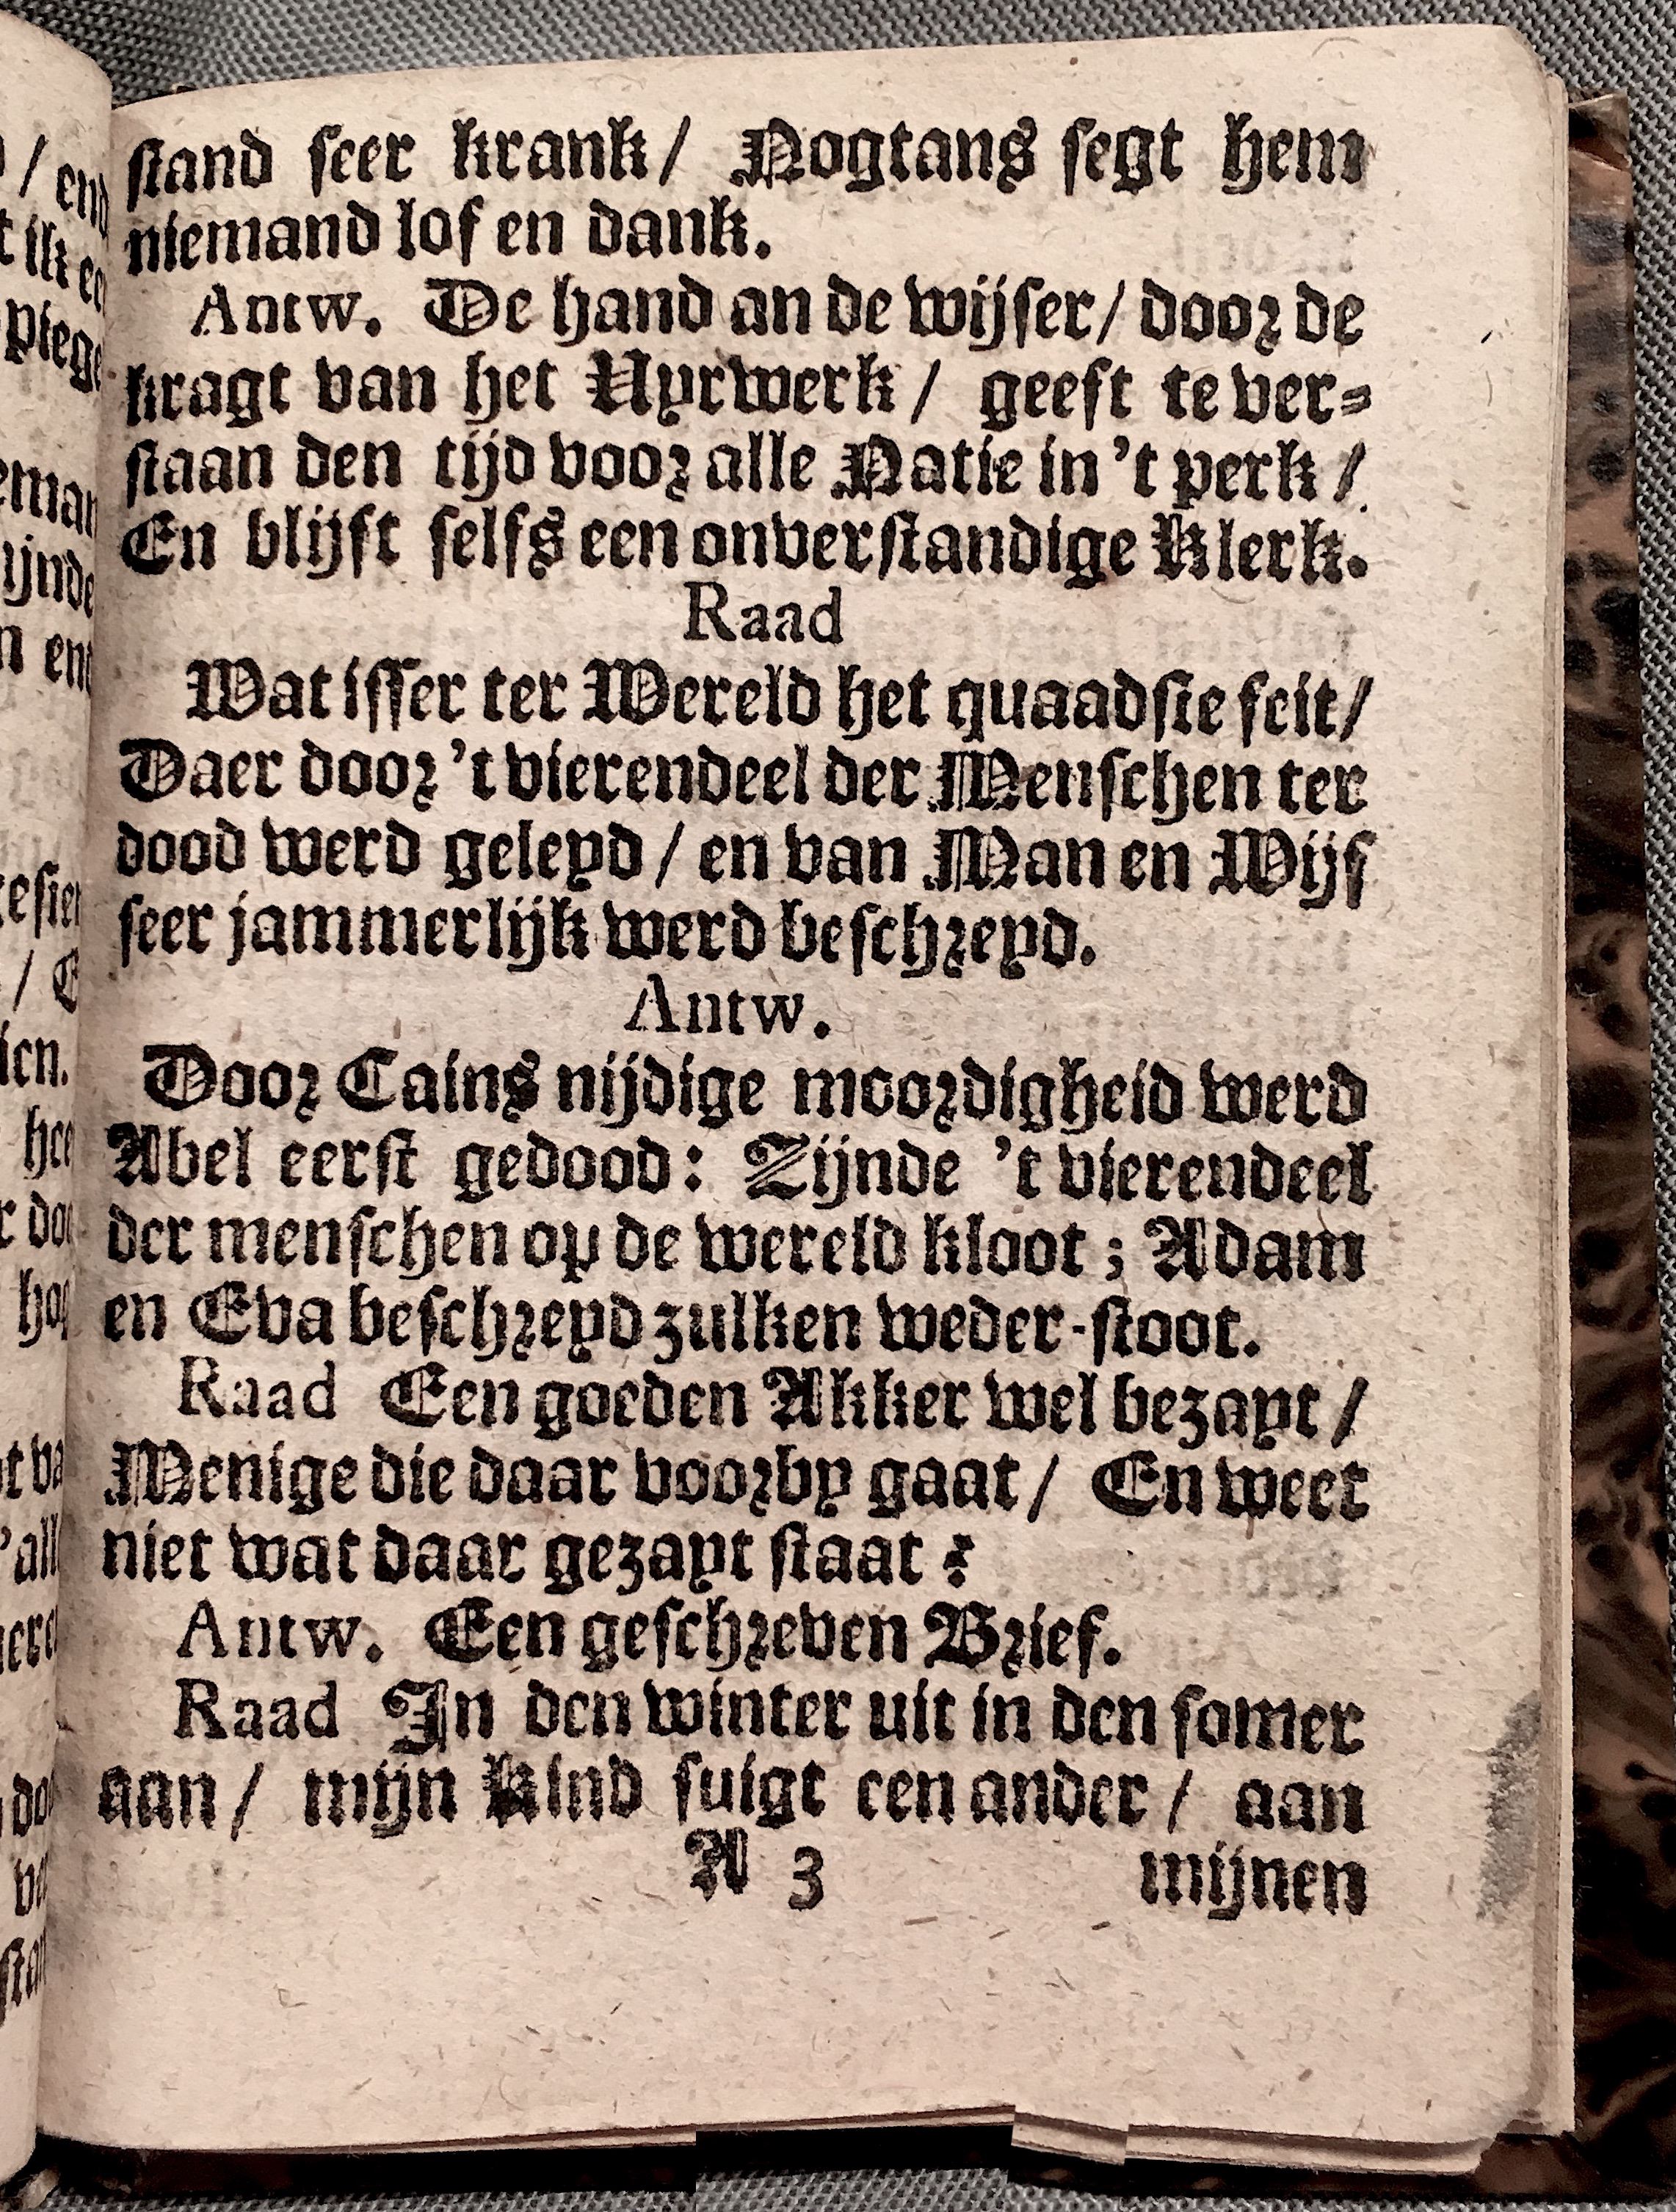 stand seer krank / Nogtans segt hem
niemand lof en dank.
Antw. De hand an de wijser / door de
kragt van het Uyrwerk / geeft te ver-
staan den tijd voor alle Natie in 't perk /
En blijft selfs een onverstandige Klerk.
Raad
Wat isser ter Wereld het quaadste feit /
Daer door 't vierendeel der Menschen ter
dood werd geleyd / en van Man en Wijf
seer jammerlijk werd beschreyd.
Antw.
Door Cains nijdige moordigheid werd
Abel eerst gedood: Zijnde 't vierendeel
der menschen op de wereld kloot; Adam
en Eva beschreyd zulken weder-stoot.
Raad Een goeden Akker wel bezayt /
Menige die daar voorby gaat / En weet
niet wat daar gezayt staat?
Antw. Een geschreven Brief.
Raad In den winter uit in den somer
aan / mijn Kind suigt een ander / aan
A 3 mijnen